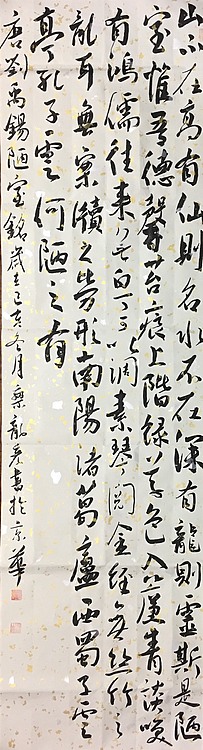 山不在高有仙則名水不在深有龍則靈斯是陋
室惟吾德馨苔痕上階綠草色入簾青談笑
有鴻儒往來無白丁可以調素琴閱金經無絲竹之
亂耳無案牘之勞形南陽諸葛廬西蜀子云
亭孔子雲何陋之有
唐劉禹錫陋室銘歲在己亥冬月書於京華